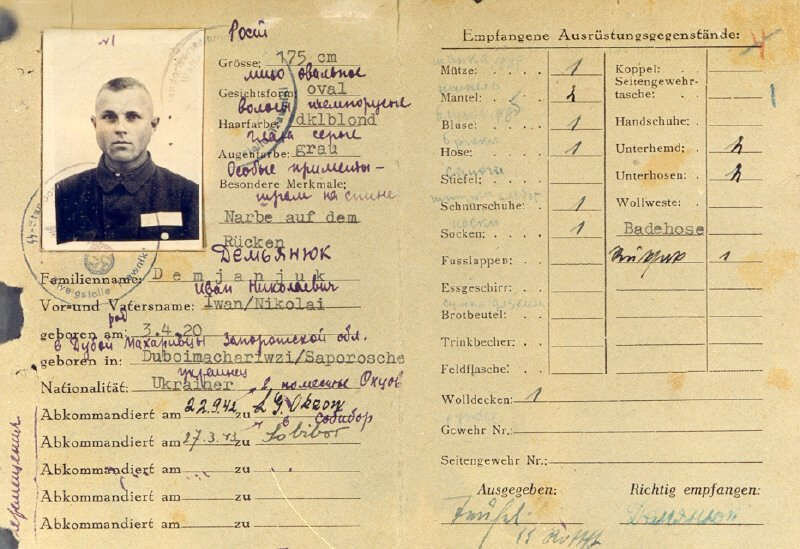 Рост
Grösse: 175 cm
лицо овальное
Gesichtsform: oval
волосы темнорусые
Haarfarbe: dklblond
глаза серые
Augenfarbe: grau
Особые приметы-
Besondere Merkmale:
шрам на спине
Narbe auf dem
Rücken
ДЕМЬЯНЮК
Familienname: Demjanjuk
Иван Николаевич
Vor-und Vatersname: Iwan/Nikolai
род
geboren am: 3.4.20
в Запорожской обл.
geboren in: Duboimachariwzi/Saporosche
украинец
Nationalität: Ukrainer
в поместье Окцов
Abkommandiert am 22.9.42 zu L.G. Okzow
в Собибор
Abkommandiert am 27.3.43 zu Sobibor
Abkommandiert am zu
Abkommandiert am zu
Abkommandiert am zu
Empfangene Ausrüstungsgegenstände:
Mütze: 1
Mantel: 2
Bluse: 1
Hose: 1
Stiefel:
Schnürschuhe: 1
Socken: 1
Fusslappen:
Essgeschirr:
Brotbeutel:
Trinkbecher:
Feldflasche:
Wolldecken: 1
Gewehr Nr.:
Seitengewehr Nr.:
Koppel:
Seitengewehr-
tasche: 1
Handschuhe:
Unterhemd: 2
Unterhosen: 2
Wollweste:
Badehose
1
Ausgegeben:
Richtig empfangen: